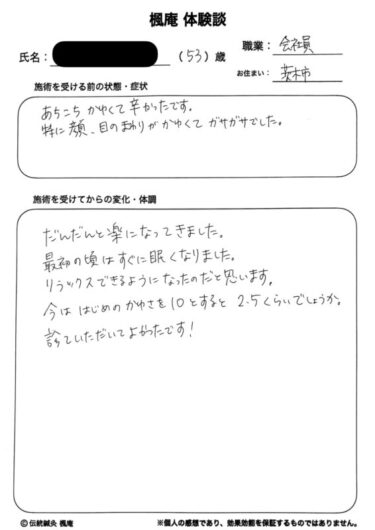 楓庵 体験談
氏名： （53）歳
職業： 会社員
お住まい： 茨木市
施術を受ける前の状態・症状
あちこち かゆくて 辛かったです。
特に 顔、目のまわりが かゆくて ガサガサでした。
施術を受けてからの変化・体調
だんだんと楽になってきました。
最初の頃は すぐに眠くなりました。
リラックスできるようになったのだと思います。
今は はじめの かゆさを 10 とすると 2.5くらいでしょうか。
診ていただいて よかったです！
© 伝統鍼灸 楓庵
※個人の感想であり、効果効能を保証するものではありません。